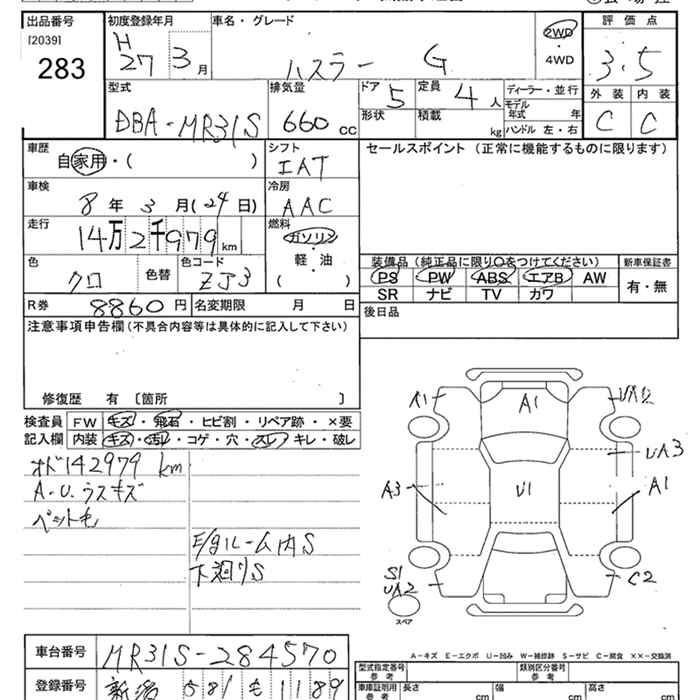 出品番号 初度登録年月 車名・グレード 評価点
[2039]
283
H
27 3月
ハスラー G
2WD
・
4WD
3.5
型式 排気量 ドア 定員 ディーラー・並行 外装 内装
DBA-MR31S 660cc 5 4人
モデル年式 年
形状 積載 kg ハンドル 左・右
C C
車歴 シフト セールスポイント (正常に機能するものに限ります)
自家用・( ) IAT
車検 冷房
8年 3月(24日) AAC
走行 燃料
14万2千979km ガソリン
軽・油
( )
色 色替 色コード
クロ ZJ3
装備品(純正品に限り○をつけてください) 新車保証書
PS PW ABS エアB AW 有・無
SR ナビ TV カワ
R券 8860円 名変期限 月 日
後日品
注意事項申告欄(不具合内容等は具体的に記入して下さい)
修復歴 有 〔箇所 〕
検査員 FW キズ・飛石・ヒビ割・リペア跡・×要
記入欄 内装 キズ・汚レ・コゲ・穴・スレ・キレ・破レ
オド142979km
A・U.ウスキズ
ペット毛
E/gルーム内S
下廻りS
A1 A1 UA2
UA3
A3 U1 A1
S1
UA2
C2
スペア
A-キズ E-エクボ U-凹み W-補修跡 S-サビ C-腐食 ××-交換済
車台番号 MR31S-284570
型式指定番号 類別区分番号
参考 参考
登録番号 新潟 581 も 1189
車庫証明用 長さ 幅 高さ
参考 cm cm cm